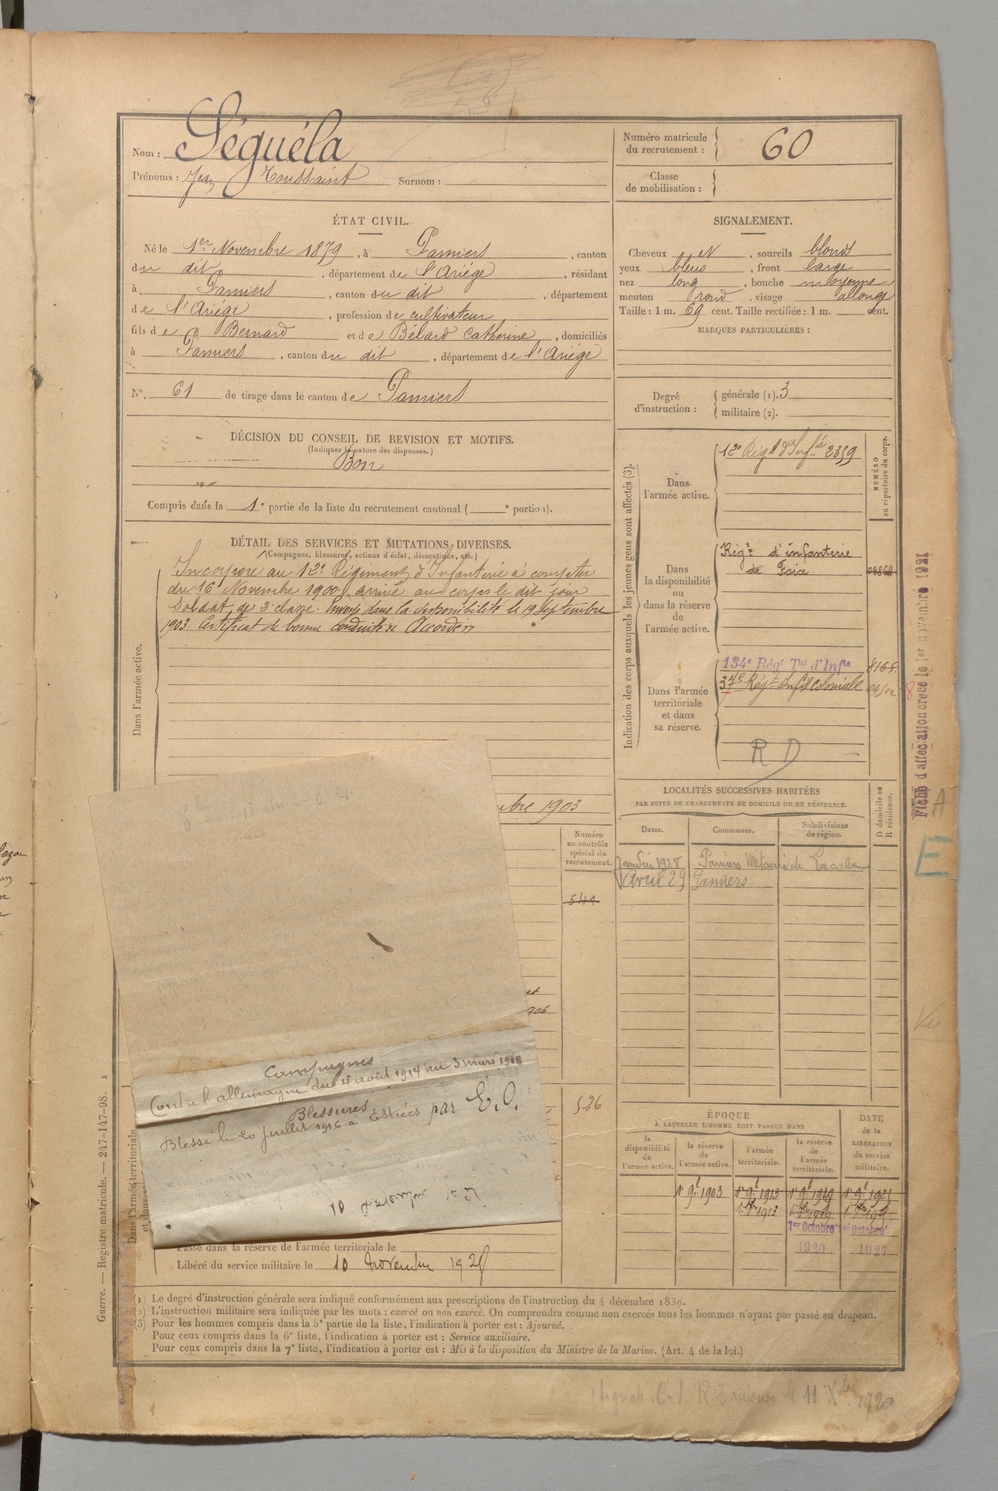 Nom : Séguéla
Prénoms : Jean Toussaint Surnom :
Numéro matricule du recrutement : 60
Classe de mobilisation :
ÉTAT CIVIL.
Né le 1er Novembre 1879, à Pamiers, canton
du dit, département de l'Ariège, résidant
à Pamiers, canton du dit, département
de l'Ariège, profession de cultivateur
fils de Bernard et de Bélard Catherine, domiciliés
à Pamiers, canton du dit, département de l'Ariège
N° 61 de tirage dans le canton de Pamiers
SIGNALEMENT.
Cheveux et, sourcils blonds
yeux bleus, front large
nez long, bouche moyenne
menton rond, visage allongé
Taille : 1 m. 69 cent. Taille rectifiée : 1 m. cent.
MARQUES PARTICULIÈRES :
Degré d'instruction : générale (1). 3
militaire (2).
DÉCISION DU CONSEIL DE REVISION ET MOTIFS.
(Indiquer la nature des dispenses.)
Bon
Compris dans la 1e partie de la liste du recrutement cantonal ( e portion).
DÉTAIL DES SERVICES ET MUTATIONS DIVERSES.
(Campagnes, blessures, actions d'éclat, décorations, etc.)
Dans l'armée active.
Incorporé au 12e Régiment d'Infanterie à compter
du 16 Novembre 1900, arrivé au corps le dit jour
Soldat de 2e classe. Envoyé dans la disponibilité le 19 Septembre
1903. Certificat de bonne conduite Accordé
Indication des corps auxquels les jeunes gens sont affectés (3).
NUMÉRO au répertoire du corps.
Dans l'armée active.
12e Régt d'Infie 2359
Dans la disponibilité ou dans la réserve de l'armée active.
Régt d'infanterie
de Foix
Dans l'armée territoriale et dans sa réserve.
134e Régt Tal d'Infie
37e Régt infie Coloniale
R D
Fiche d'affectation créée le 1er novembre 1921
A
E
LOCALITÉS SUCCESSIVES HABITÉES
PAR SUITE DE CHANGEMENTS DE DOMICILE OU DE RÉSIDENCE.
Dates. Communes. Subdivisions de région. D domicile ou R résidence.
Janvier 1928 Pamiers Métairie de Lacole
Avril 29 Pamiers
mbre 1903
Numéro au contrôle spécial du recrutement.
544
526
Campagnes
Contre l'allemagne du 4 août 1914 au 3 mars 1918
Blessures
Blessé le 20 juillet 1916 à Estrées par E.O.
Dans l'armée territoriale
Passé dans la réserve de l'armée territoriale le
Libéré du service militaire le 10 novembre 1928
ÉPOQUE
À LAQUELLE L'HOMME DOIT PASSER DANS
DATE de la LIBÉRATION du service militaire.
la disponibilité de l'armée active. la réserve de l'armée active. l'armée territoriale. la réserve de l'armée territoriale.
1er 9bre 1903 1er 9bre 1913 1er 9bre 1919
1er Octobre
1920 1927
(1) Le degré d'instruction générale sera indiqué conformément aux prescriptions de l'instruction du 4 décembre 1889.
(2) L'instruction militaire sera indiquée par les mots : exercé ou non exercé. On comprendra comme non exercés tous les hommes n'ayant pas passé au drapeau.
(3) Pour les hommes compris dans la 5e partie de la liste, l'indication à porter est : Ajourné.
Pour ceux compris dans la 6e liste, l'indication à porter est : Service auxiliaire.
Pour ceux compris dans la 7e liste, l'indication à porter est : Mis à la disposition du Ministre de la Marine. (Art. 4 de la loi.)
Guerre. — Registre matricule. — 247-147-98.